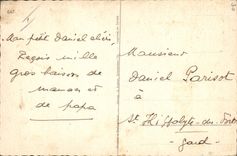 Mon petit Daniel chéri,
Reçois mille
gros baisers de
maman et
de papa
Monsieur
Daniel Parisot
à
St Hippolyte-du-Fort
Gard